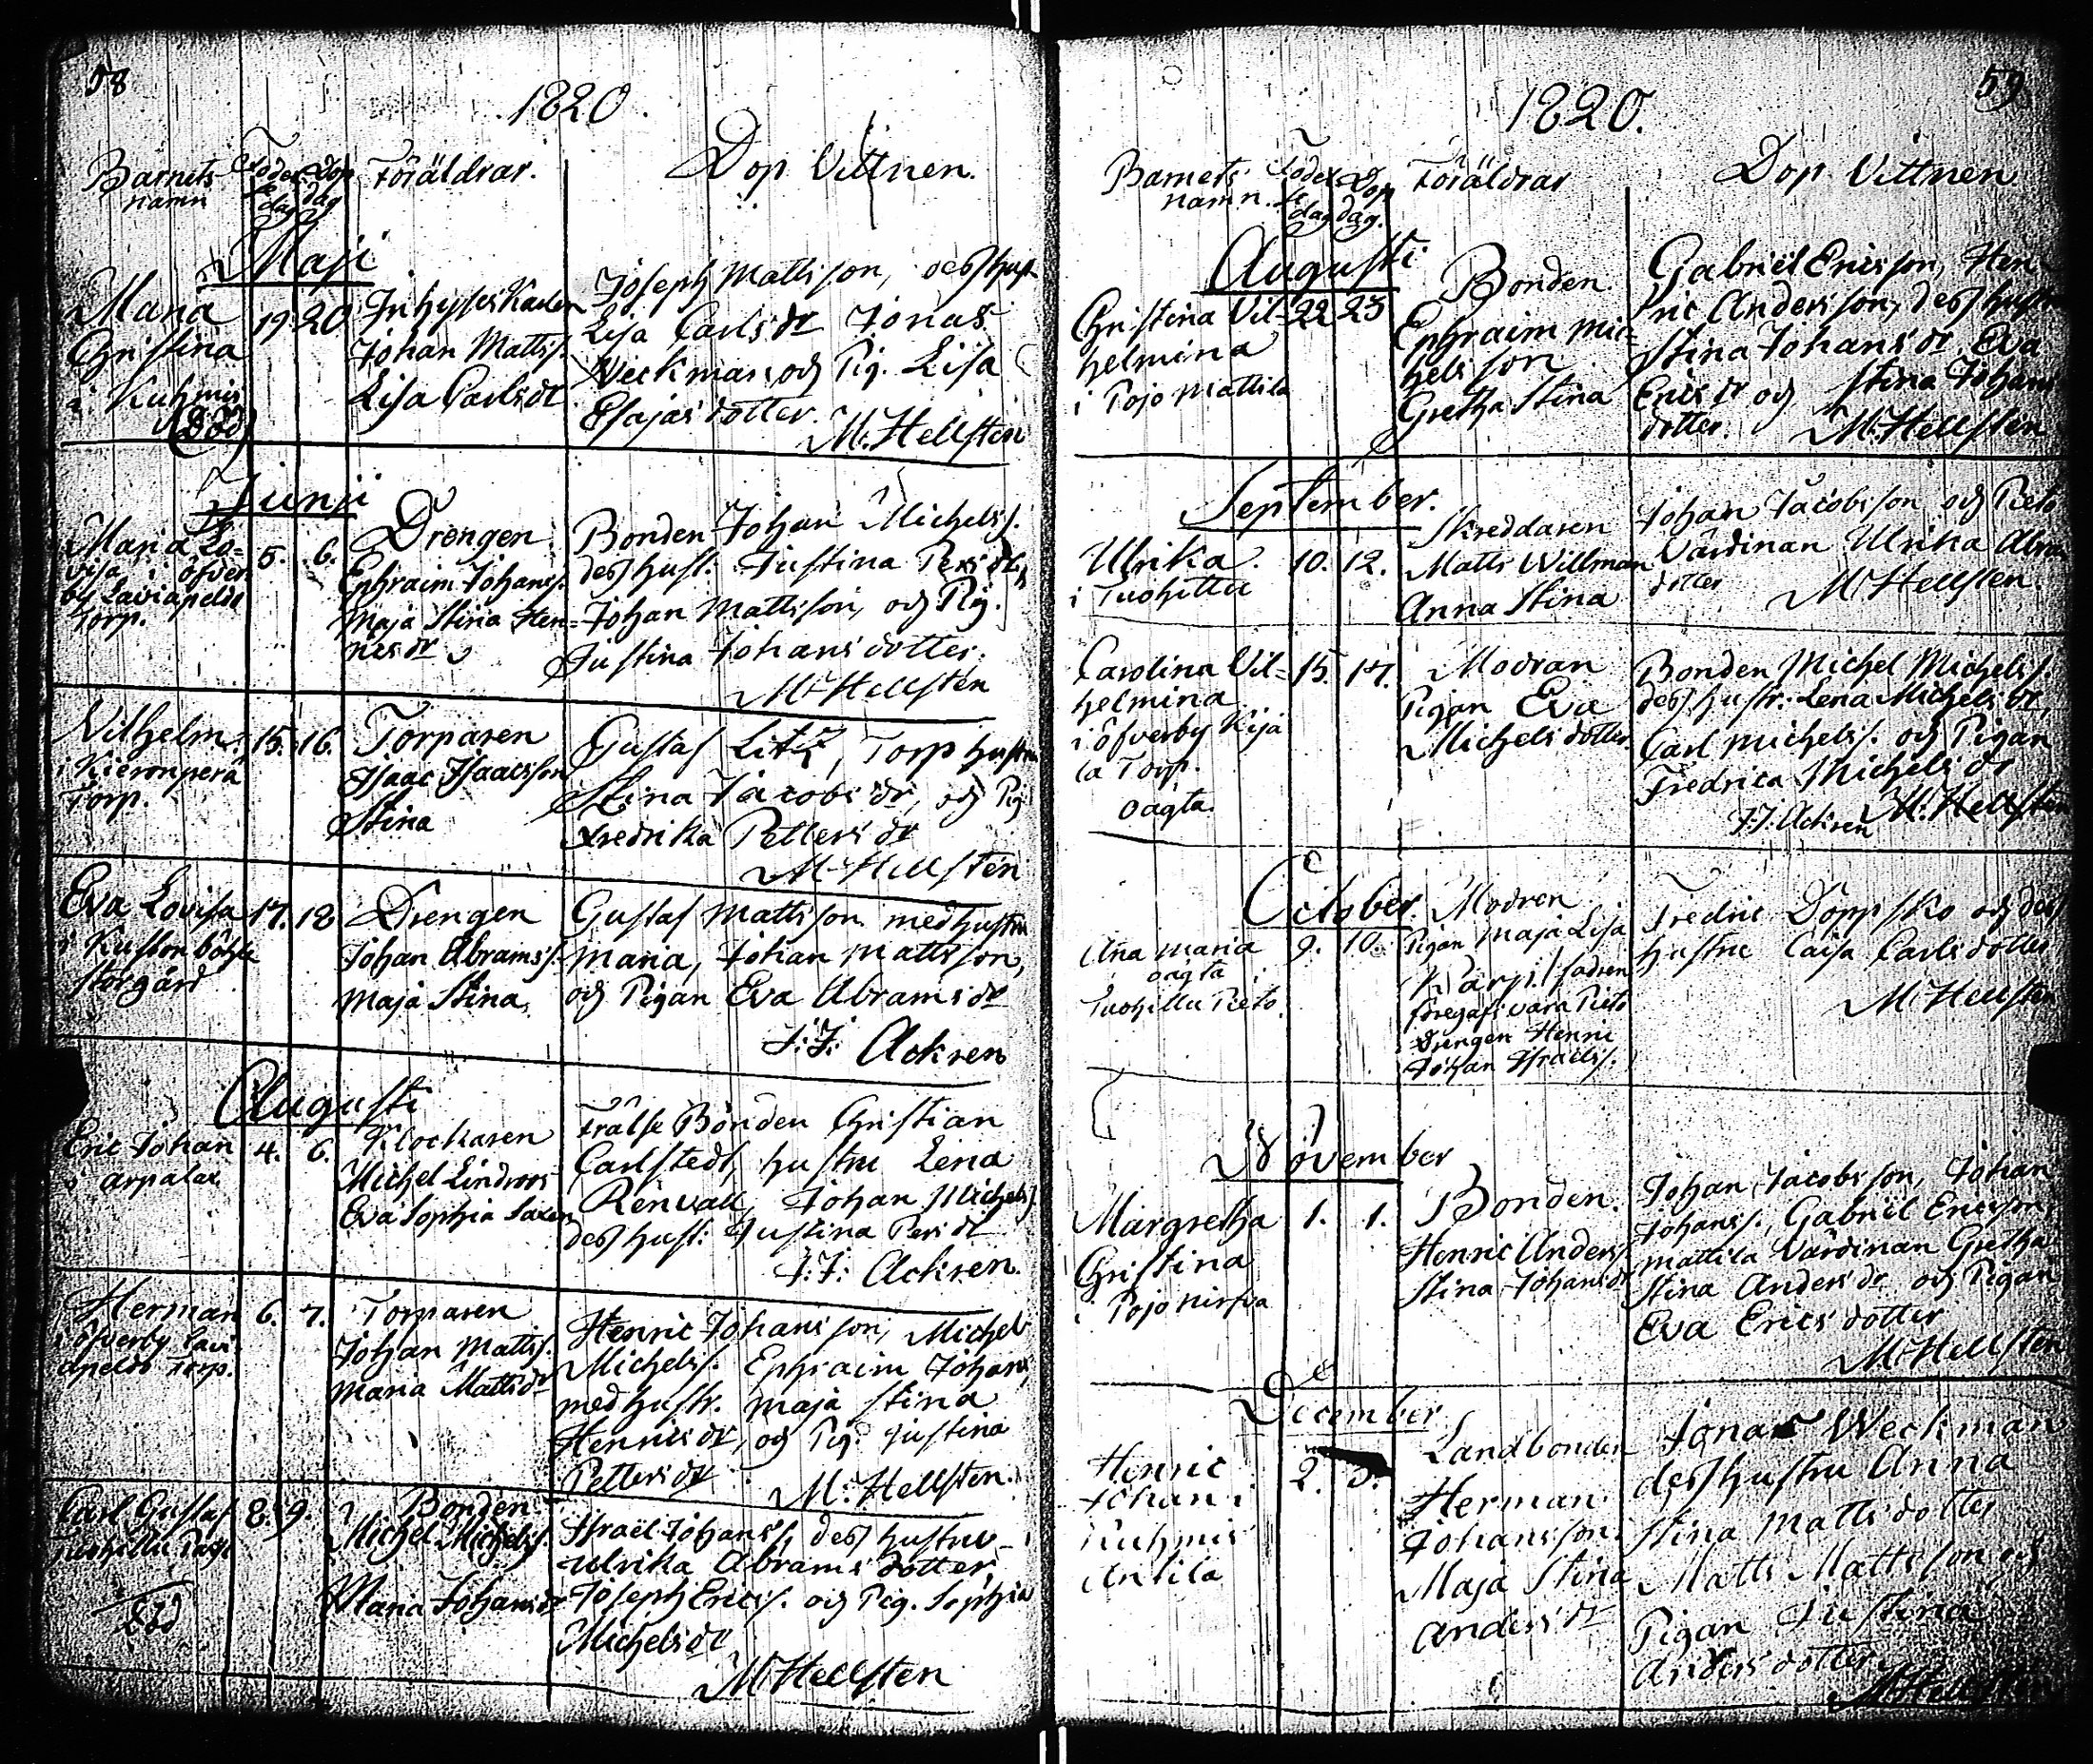 58
1820.
Barnets namn
Födelse dag
Dop dag
Föräldrar.
Dop Vittnen.
Maji
Maria
Christina
i Kuhmis
(Död)
19.
20
Inhyses Karlen
Johan Mattss.
Lisa Carlsdr
Joseph Mattsson, dess hust
Lisa Carlsdr Jonas
Weckman och Pig. Lisa
Esajasdotter.
M. Hellsten
Junii
Maria Lo=
visa i öfver
by Laviapeldo
Torp.
5.
6.
Drengen
Ephraim Johanss.
Maja Stina Hen=
ricsdr
Bonden Johan Michelss.
dess hust. Justina Persdr,
Johan Mattsson, och Pig.
Justina Johansdotter.
M. Hellsten
Vilhelm.
i Kieronperä
Torp.
15.
16.
Torparen
Isaac Isaacsson
Stina
Gustaf Litz, Torp hustru
Stina Jacobsdr, och Pig
Fredrika Pettersdr
M. Hellsten
Eva Lovisa
i Kuston böhle
storgård
17.
18
Drengen
Johan Abramss.
Maja Stina,
Gustaf Mattsson med hustru
Maria, Johan Mattsson,
och Pigan Eva Abramsdr
J: J: Ackren
Augusti
Eric Johan
i Arpalax
4.
6.
Klockaren
Michel Lindroos
Eva Sophia Saxen
Frälse Bonden Christian
Carlstedt, hustru Lena
Renvall, Johan Michelss
dess hust: Justina Persdr
J: J: Ackren.
Herman
i öfverby Lavi
apeldo Torp.
6.
7.
Torparen
Johan Mattss.
Maria Mattsdr
Henric Johansson, Michel
Michelss. Ephraim Johans,
med hustr. Maja Stina
Henricsdr, och Pig. Justina
Pettersdr
M. Hellsten.
Carl Gustaf
Tuohittu
Död
8.
9.
Bonden
Michel Michelss.
Maria Johansdr
Israël Johanss, dess hustru
Ulrika Abramsdotter,
Joseph Ericss. och Pig. Sophia
Michelsdr
M. Hellsten
59
1820.
Barnets namn.
Födelse dag
Dop dag.
Föräldrar
Dop Vittnen.
Augusti
Christina Vil=
helmina
i Pojo Mattila
22
23
Bonden
Ephraim Mic=
helsson
Gretha Stina
Gabriel Ericsson, Hen
ric Andersson, dess hustru
Stina Johansdr Eva
Ericsdr och Stina Johans
dotter.
M. Hellsten
September.
Ulrika.
i Tuohittu
10.
12.
Skreddaren
Matts Willman
Anna Stina
Johan Jacobsson och Pieto
Värdinnan Ulrika Abra
dotter
M. Hellsten.
Carolina Vil=
helmina
i öfverby Kijä
la Torp.
oägta.
15.
17.
Modran
Pigan Eva
Michelsdotter.
Bonden Michel Michelss.
dess hustr. Lena Michelsdr,
Carl Michelss. och Pigan
Fredrica Michelsdr
J: J: Ackren
M. Hellsten
October.
Ana Maria
oägta i
Tuohittu Pieto.
9.
10.
Modren
Pigan Maja Lisa
fadren
föregafs vara Pieto
Drengen Henric
Johan Israelss.
Fredric Doppsko och dess
hustru Caisa Carlsdotter
M. Hellsten
November
Margretha
Christina
i Pojo Nirfva
1.
1.
Bonden.
Henric Anderss.
Stina Johansdr
Johan Jacobsson, Johan
Johanss., Gabriël Ericsson,
Mattila Värdinan Gretha
Stina Andersdr och Pigan
Eva Ericsdotter
M. Hellsten
December
Henric
Johan i
Kuhmis
Antila
2.
3.
Landbonden
Herman
Johansson.
Maja Stina
Andersdr
Jonas Weckman
dess hustru Anna
Stina Mattsdotter
Matts Mattsson och
Pigan Justina
Andersdotter
M. Hellsten